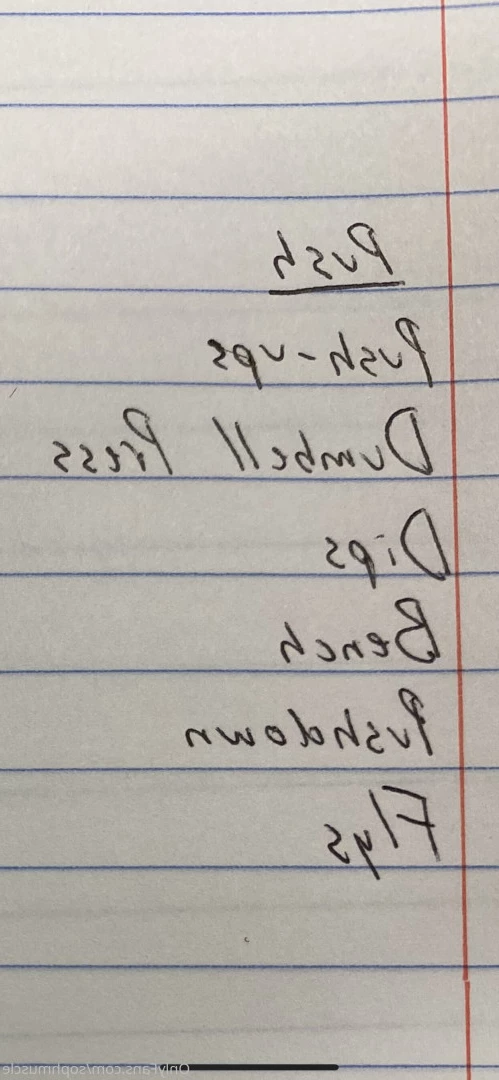 Push
Push-ups
Dumbell Press
Dips
Bench
Pushdown
Flys
OnlyFans.com/sophmuscle